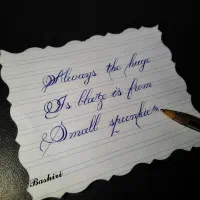 Always the huge
Is blaze is from
Small spunkies
Bashiri